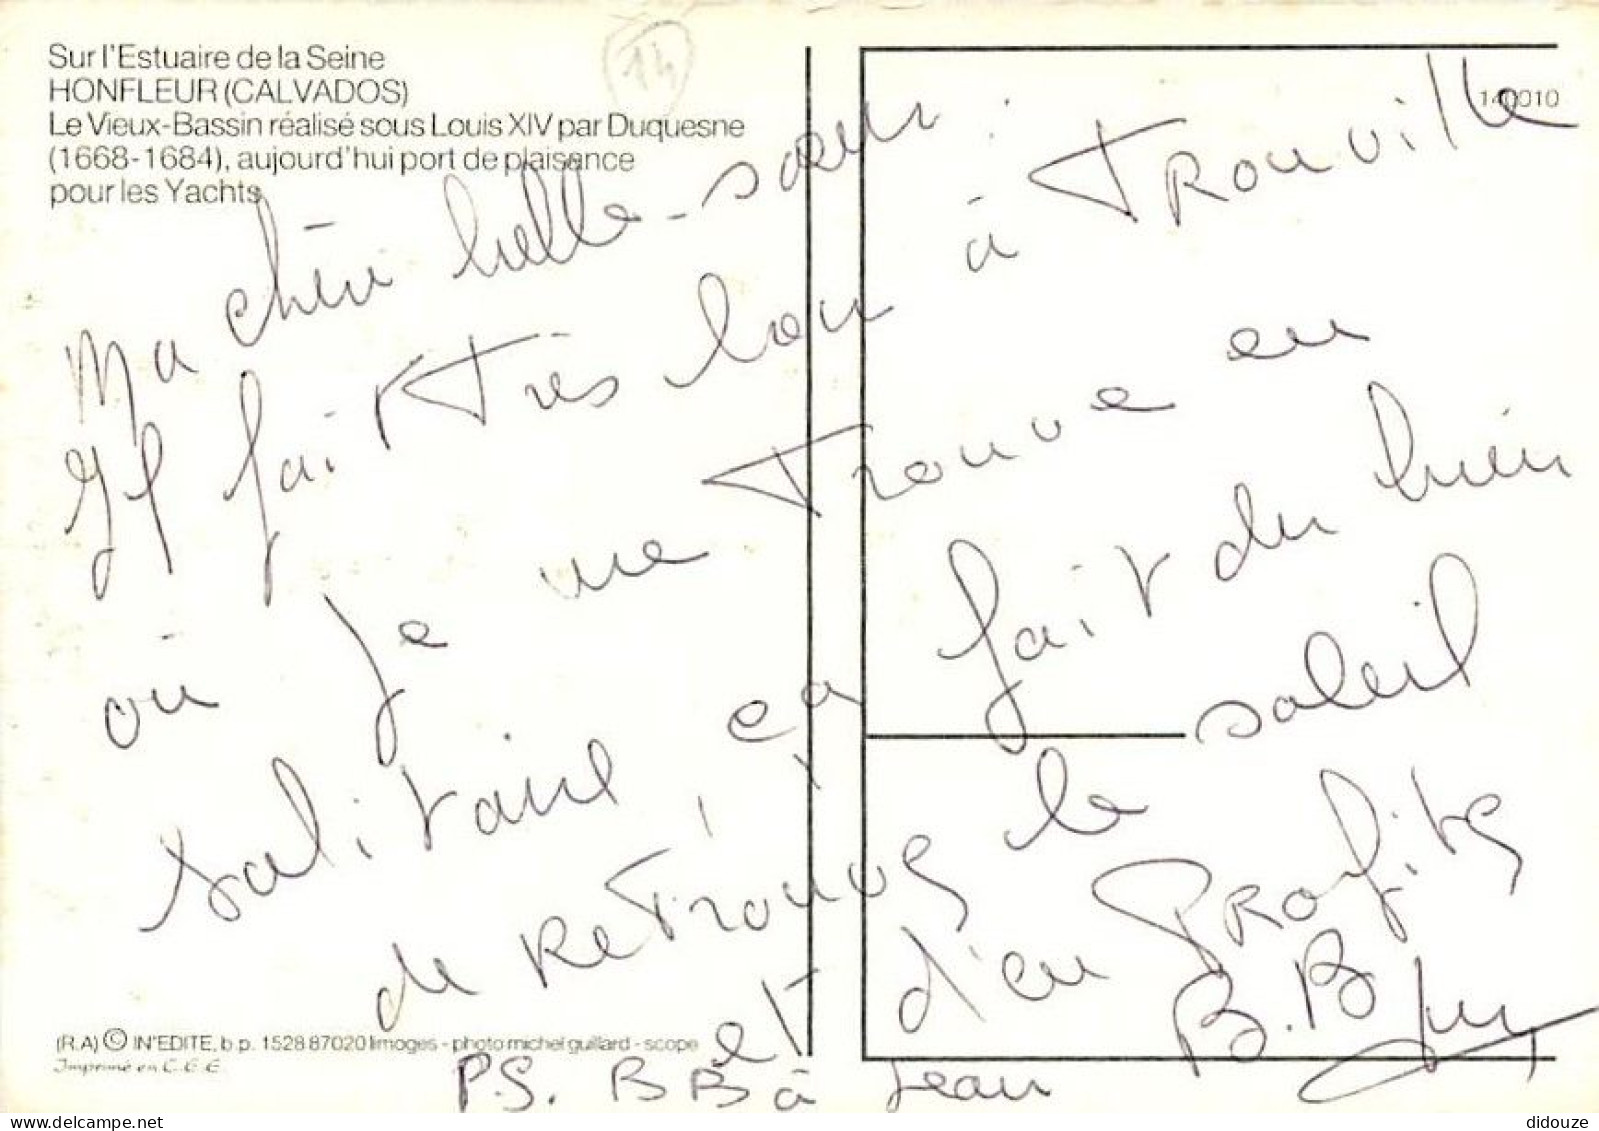 Sur l'Estuaire de la Seine
HONFLEUR (CALVADOS)
Le Vieux-Bassin réalisé sous Louis XIV par Duquesne
(1668-1684), aujourd'hui port de plaisance
pour les Yachts
14
140010
Ma chère belle-sœur
Il fait très bon à Trouville
où je me trouve en
solitaire, ça fait du bien
de retrouver le soleil
et d'en profiter
B.B
P.S. BB à Jean
(R.A) © IN'EDITE, b.p. 1528 87020 limoges - photo michel guillard - scope
Imprimé en C.E.E.
didouze